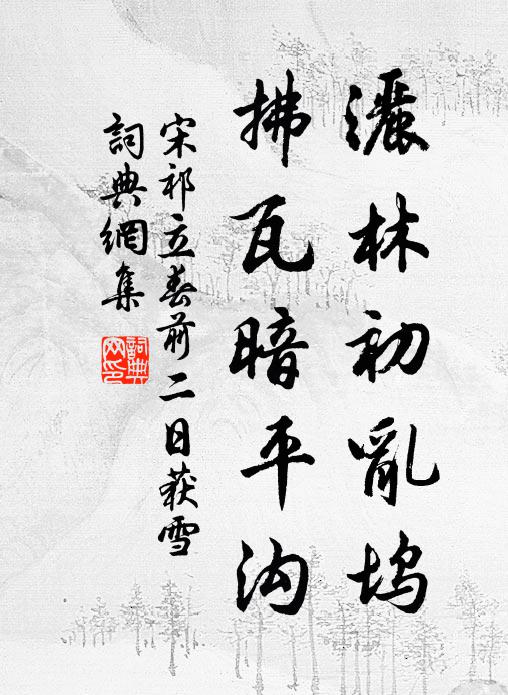 灑林初亂塢
拂瓦暗平沟
宋祁立春前二日获雪
詞典網集
詞典
网印